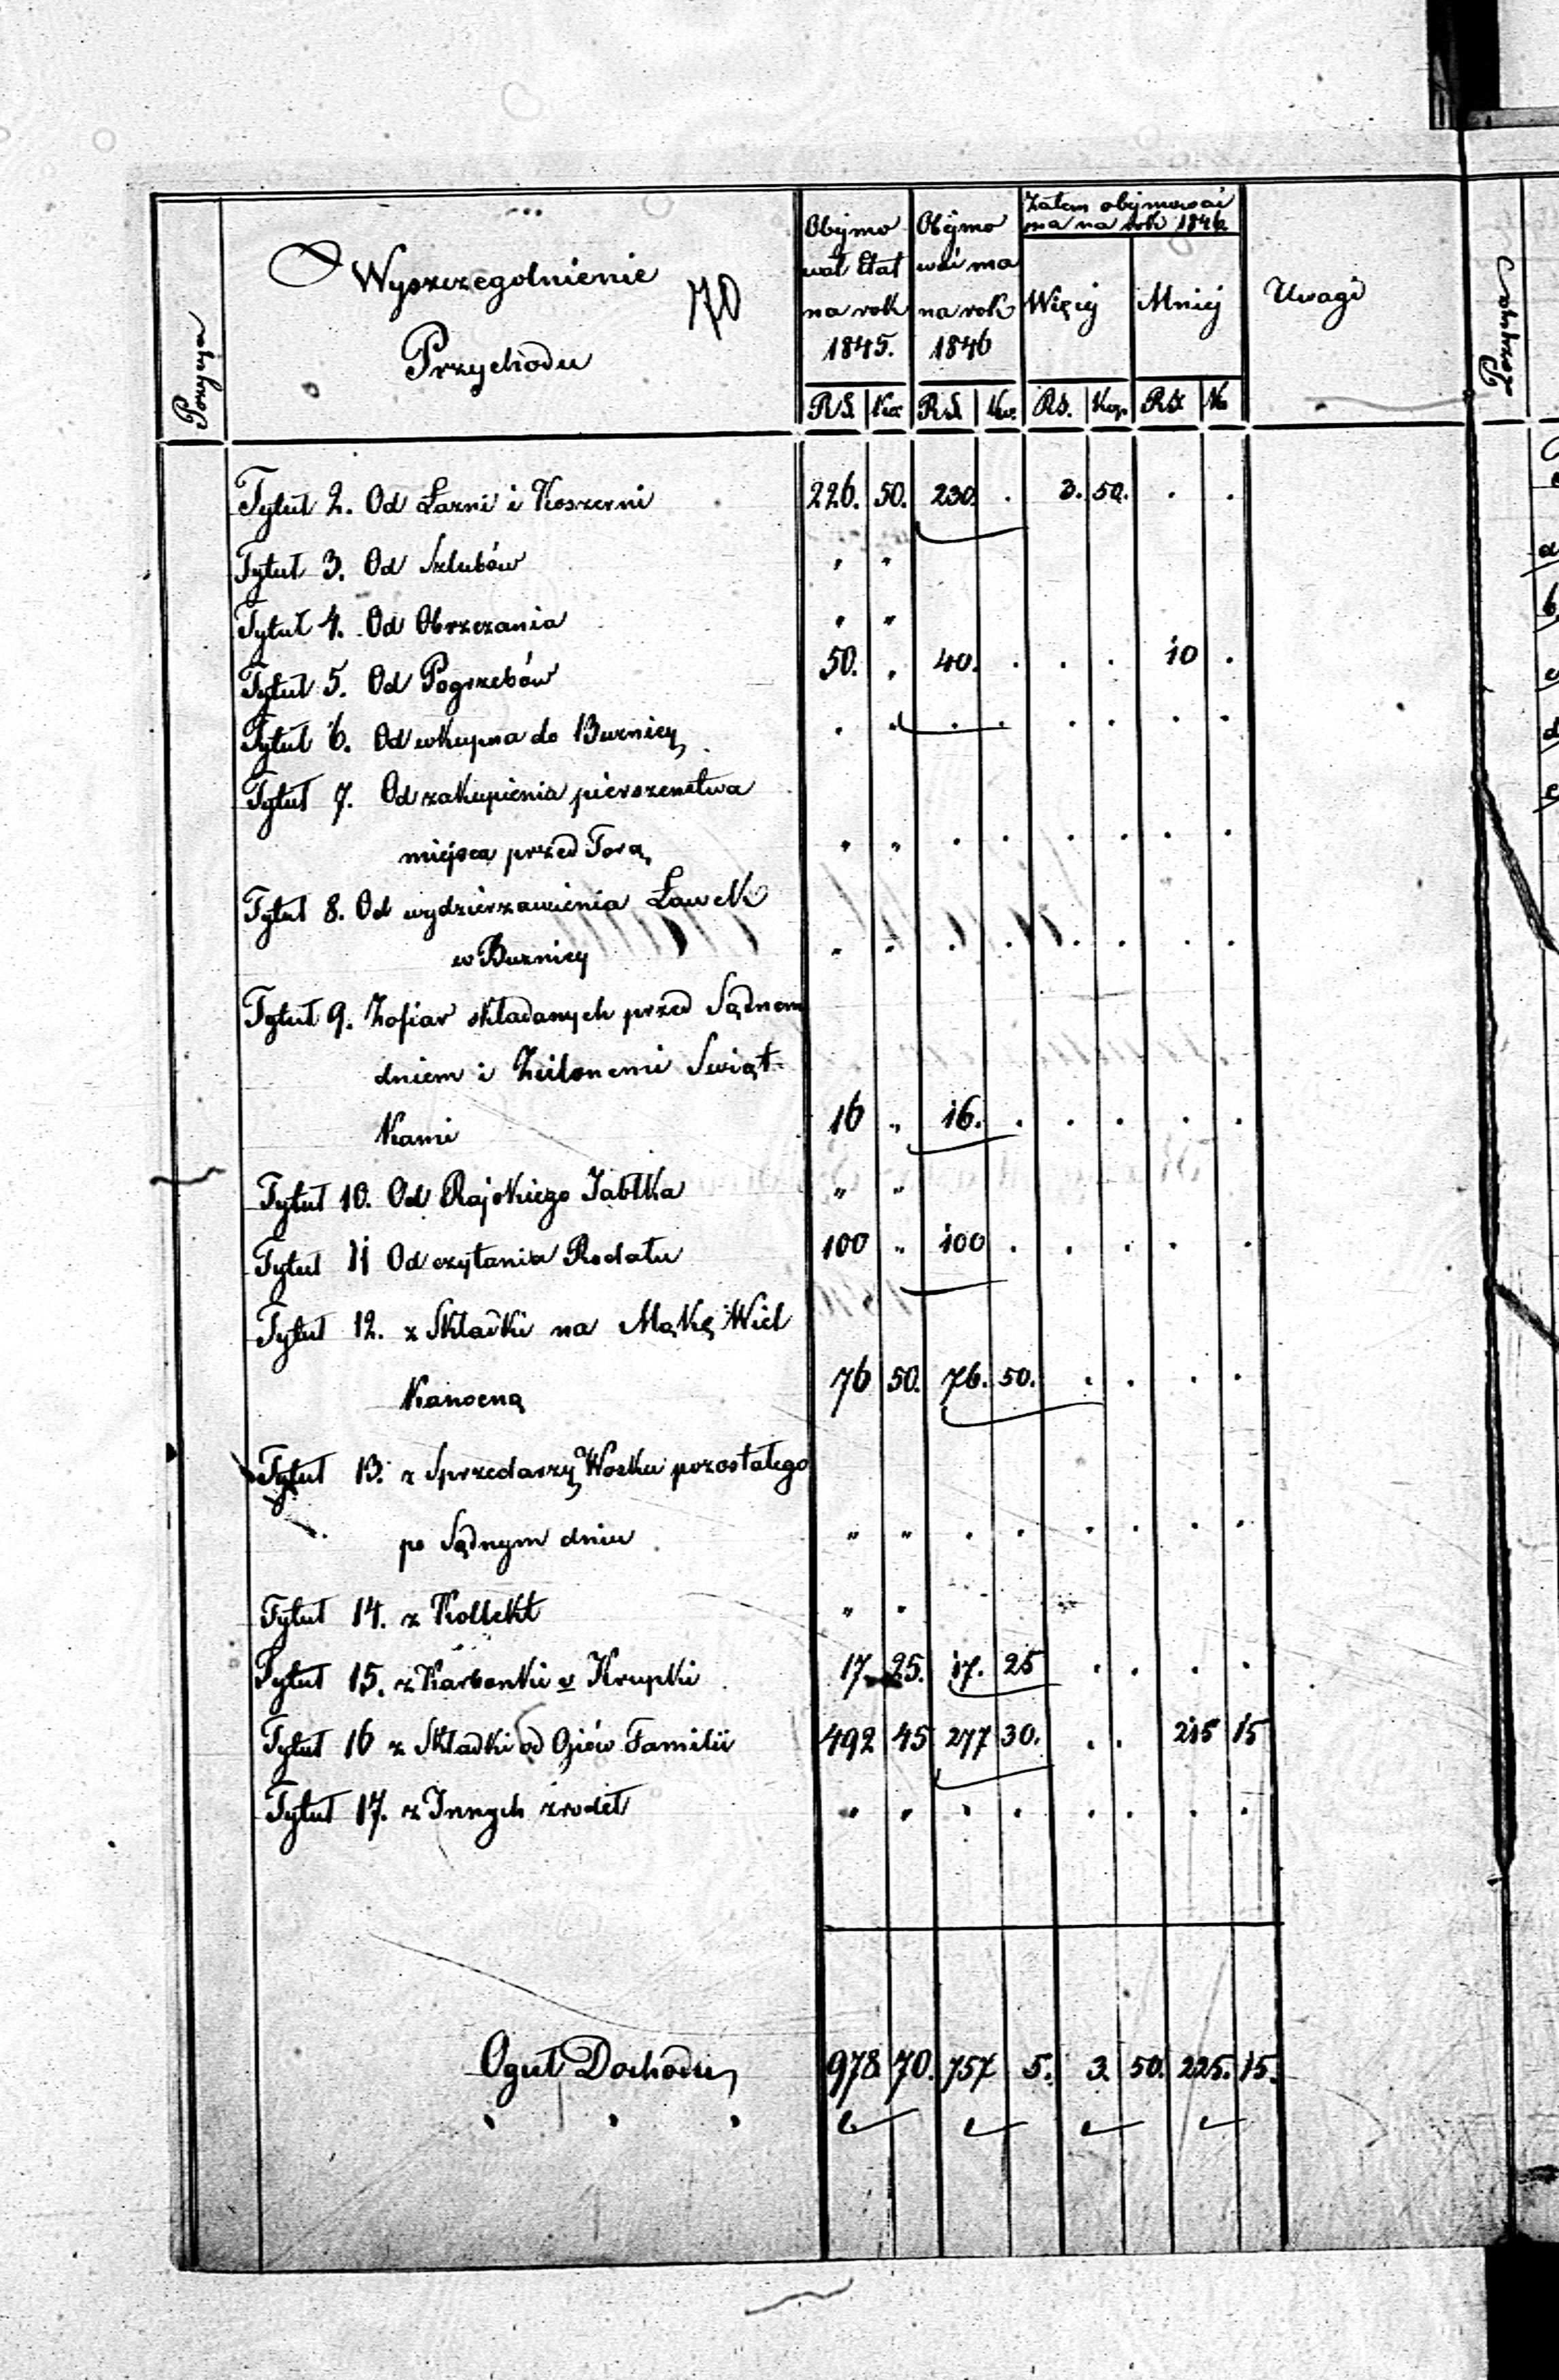 Pozycya
Wyszczegolnienie
Przychodu
70
Obejmo
wał Etat
na rok
1845.
Obejmo
wać ma
na rok
1846
Zatem obejmować
ma na rok 1846.
Więcej
Mniej
Uwagi
RS. Ko. RS. Ko. RS. Kop. RS. Ko
Tytuł 2. Od Łazni i Koszerni 226. 50. 230. . 3. 50. . .
Tytuł 3. Od Szlubów " "
Tytuł 4. Od Obrzezania " "
Tytuł 5. Od Pogrzebów 50. . 40. . . . 10 .
Tytuł 6. Od wkupna do Buznicy . . . . . . . .
Tytuł 7. Od zakupienia pierszenstwa
miejsca przed Torą " " . . . . . .
Tytuł 8. Od wydzierzawienia Ławek
w Buznicy " " . . . . . .
Tytuł 9. Zofiar składanych przed Sądnem
dniem i Zielonemi Swiąt-
kami 16 " 16. . . . . .
Tytuł 10. Od Rajskiego Jabłka " "
Tytuł 11 Od czytania Rodału 100 " 100 . . . . .
Tytuł 12. z Składki na Mąkę Wiel
kanocną 76 50. 76. 50. . . . .
Tytuł 13. z Sprzedarzy Wosku pozostałego
po Sądnym dniu " " . . . . . .
Tytuł 14. z Kollekt " "
Tytuł 15. z Karbonki v Krupki 17. 25. 17. 25 . . . .
Tytuł 16 z Składki od Ojców Familii 492 45 277 30. . . 215 15
Tytuł 17. z Innych zrodeł " " . . . . . .
Oguł Dochodu 978. 70. 757 5. 3. 50. 225. 15.
Pozycya
a
b
c
d
e